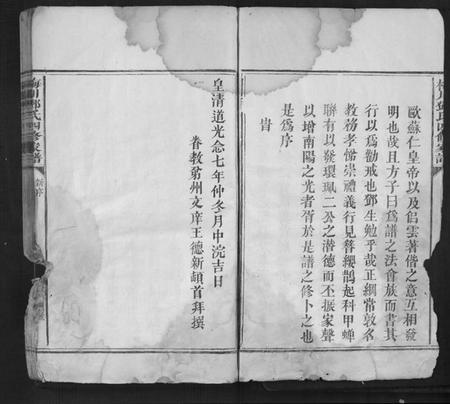 歐蘇仁皇帝以及侣雲著偕之意互相發
明也哉且方子曰爲譜之法會族而書其
行以爲勸戒也鄧生勉乎哉正綱常敦名
教務孝悌崇禮義行見簪纓鵲起科甲蟬
聯有以發環珮二公之潛德而丕振家聲
以增南陽之光者胥於是譜之修卜之也
是爲序
旹
皇清道光念七年仲冬月中浣吉日
眷教弟州文庠王德新頓首拜撰
梅川鄧氏四修家譜
序